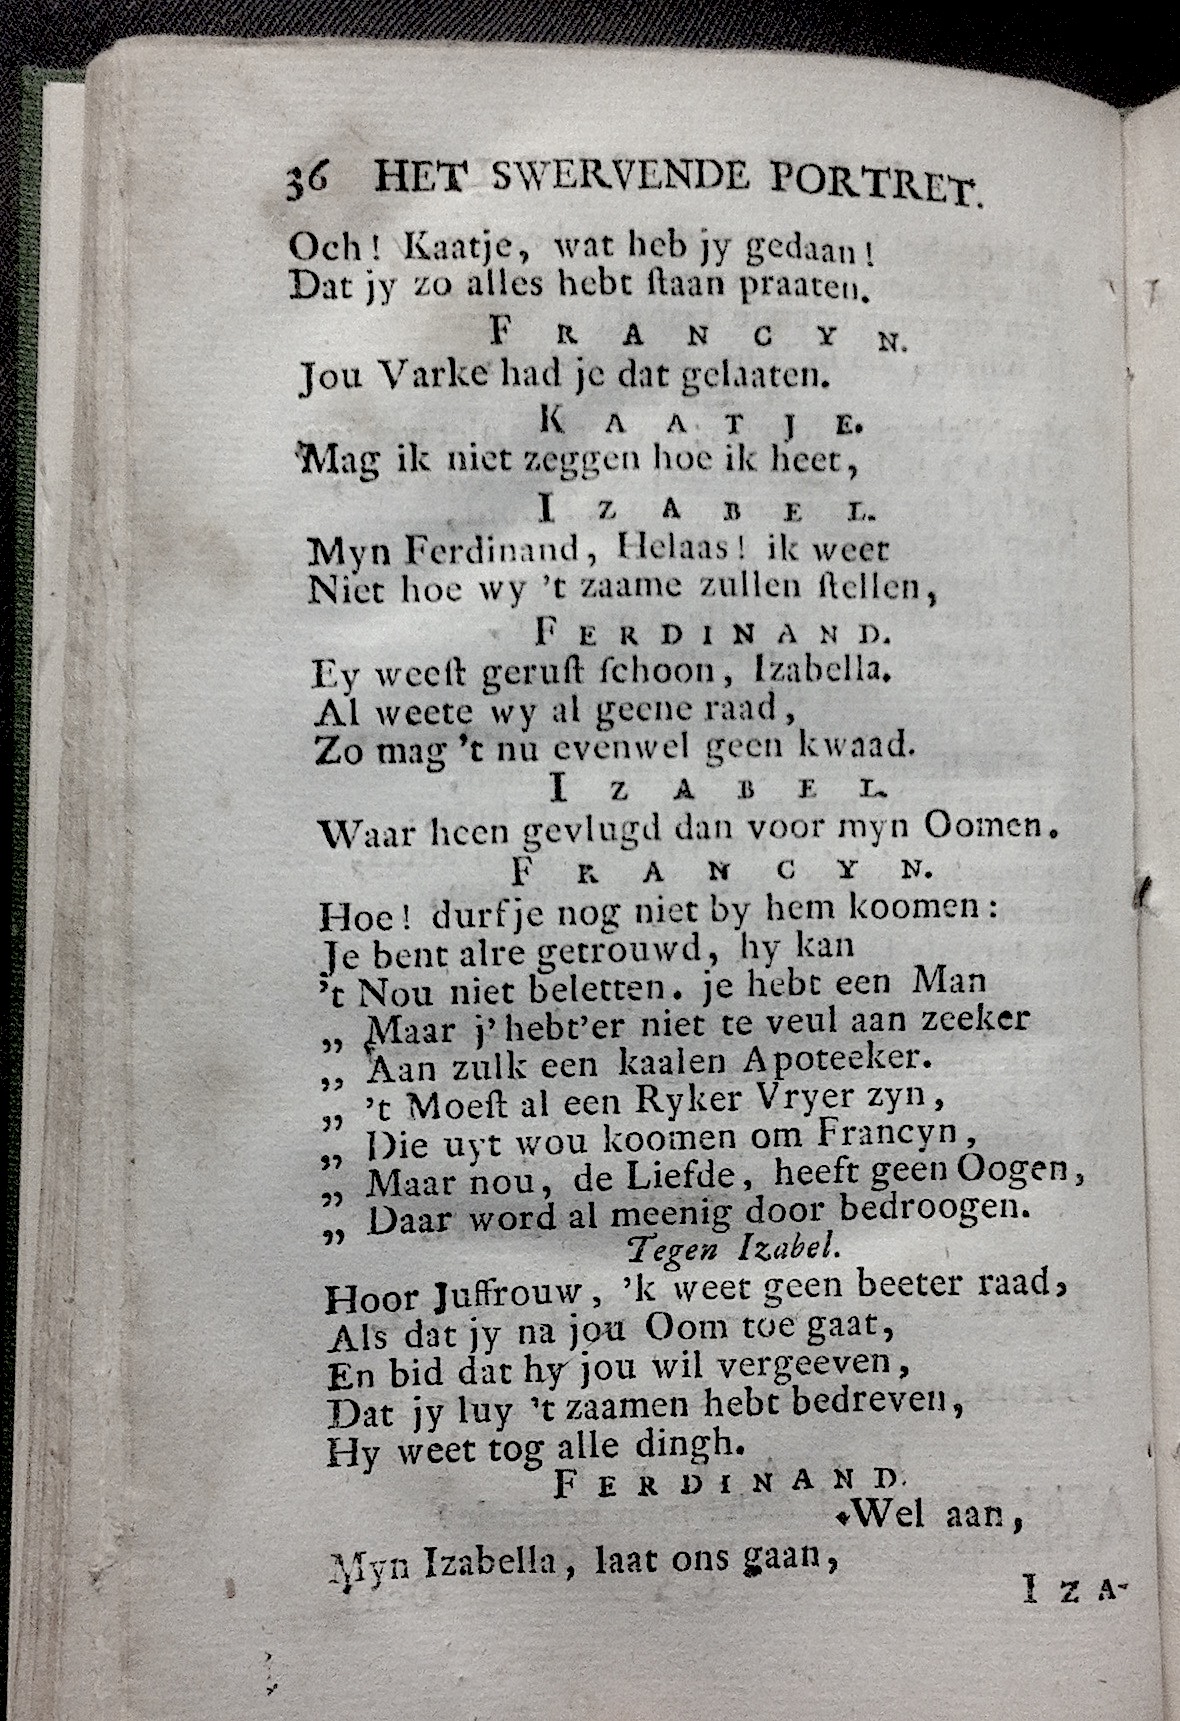 36 HET SWERVENDE PORTRET.
Och! Kaatje, wat heb jy gedaan!
Dat jy zo alles hebt ſtaan praaten.
FRANCYN.
Jou Varke had je dat gelaaten.
KAATJE.
Mag ik niet zeggen hoe ik heet,
IZABEL.
Myn Ferdinand, Helaas! ik weet
Niet hoe wy 't zaame zullen ſtellen,
FERDINAND.
Ey weeſt geruſt ſchoon, Izabella.
Al weete wy al geene raad,
Zo mag 't nu evenwel geen kwaad.
IZABEL.
Waar heen gevlugd dan voor myn Oomen.
FRANCYN.
Hoe! durf je nog niet by hem koomen:
Je bent alre getrouwd, hy kan
't Nou niet beletten. je hebt een Man
„ Maar j' hebt'er niet te veul aan zeeker
„ Aan zulk een kaalen Apoteeker.
„ 't Moeſt al een Ryker Vryer zyn,
„ Die uyt wou koomen om Francyn,
„ Maar nou, de Liefde, heeft geen Oogen,
„ Daar word al meenig door bedroogen.
Tegen Izabel.
Hoor Juffrouw, 'k weet geen beeter raad,
Als dat jy na jou Oom toe gaat,
En bid dat hy jou wil vergeeven,
Dat jy luy 't zaamen hebt bedreven,
Hy weet tog alle dingh.
FERDINAND.
Wel aan,
Myn Izabella, laat ons gaan,
IZA-